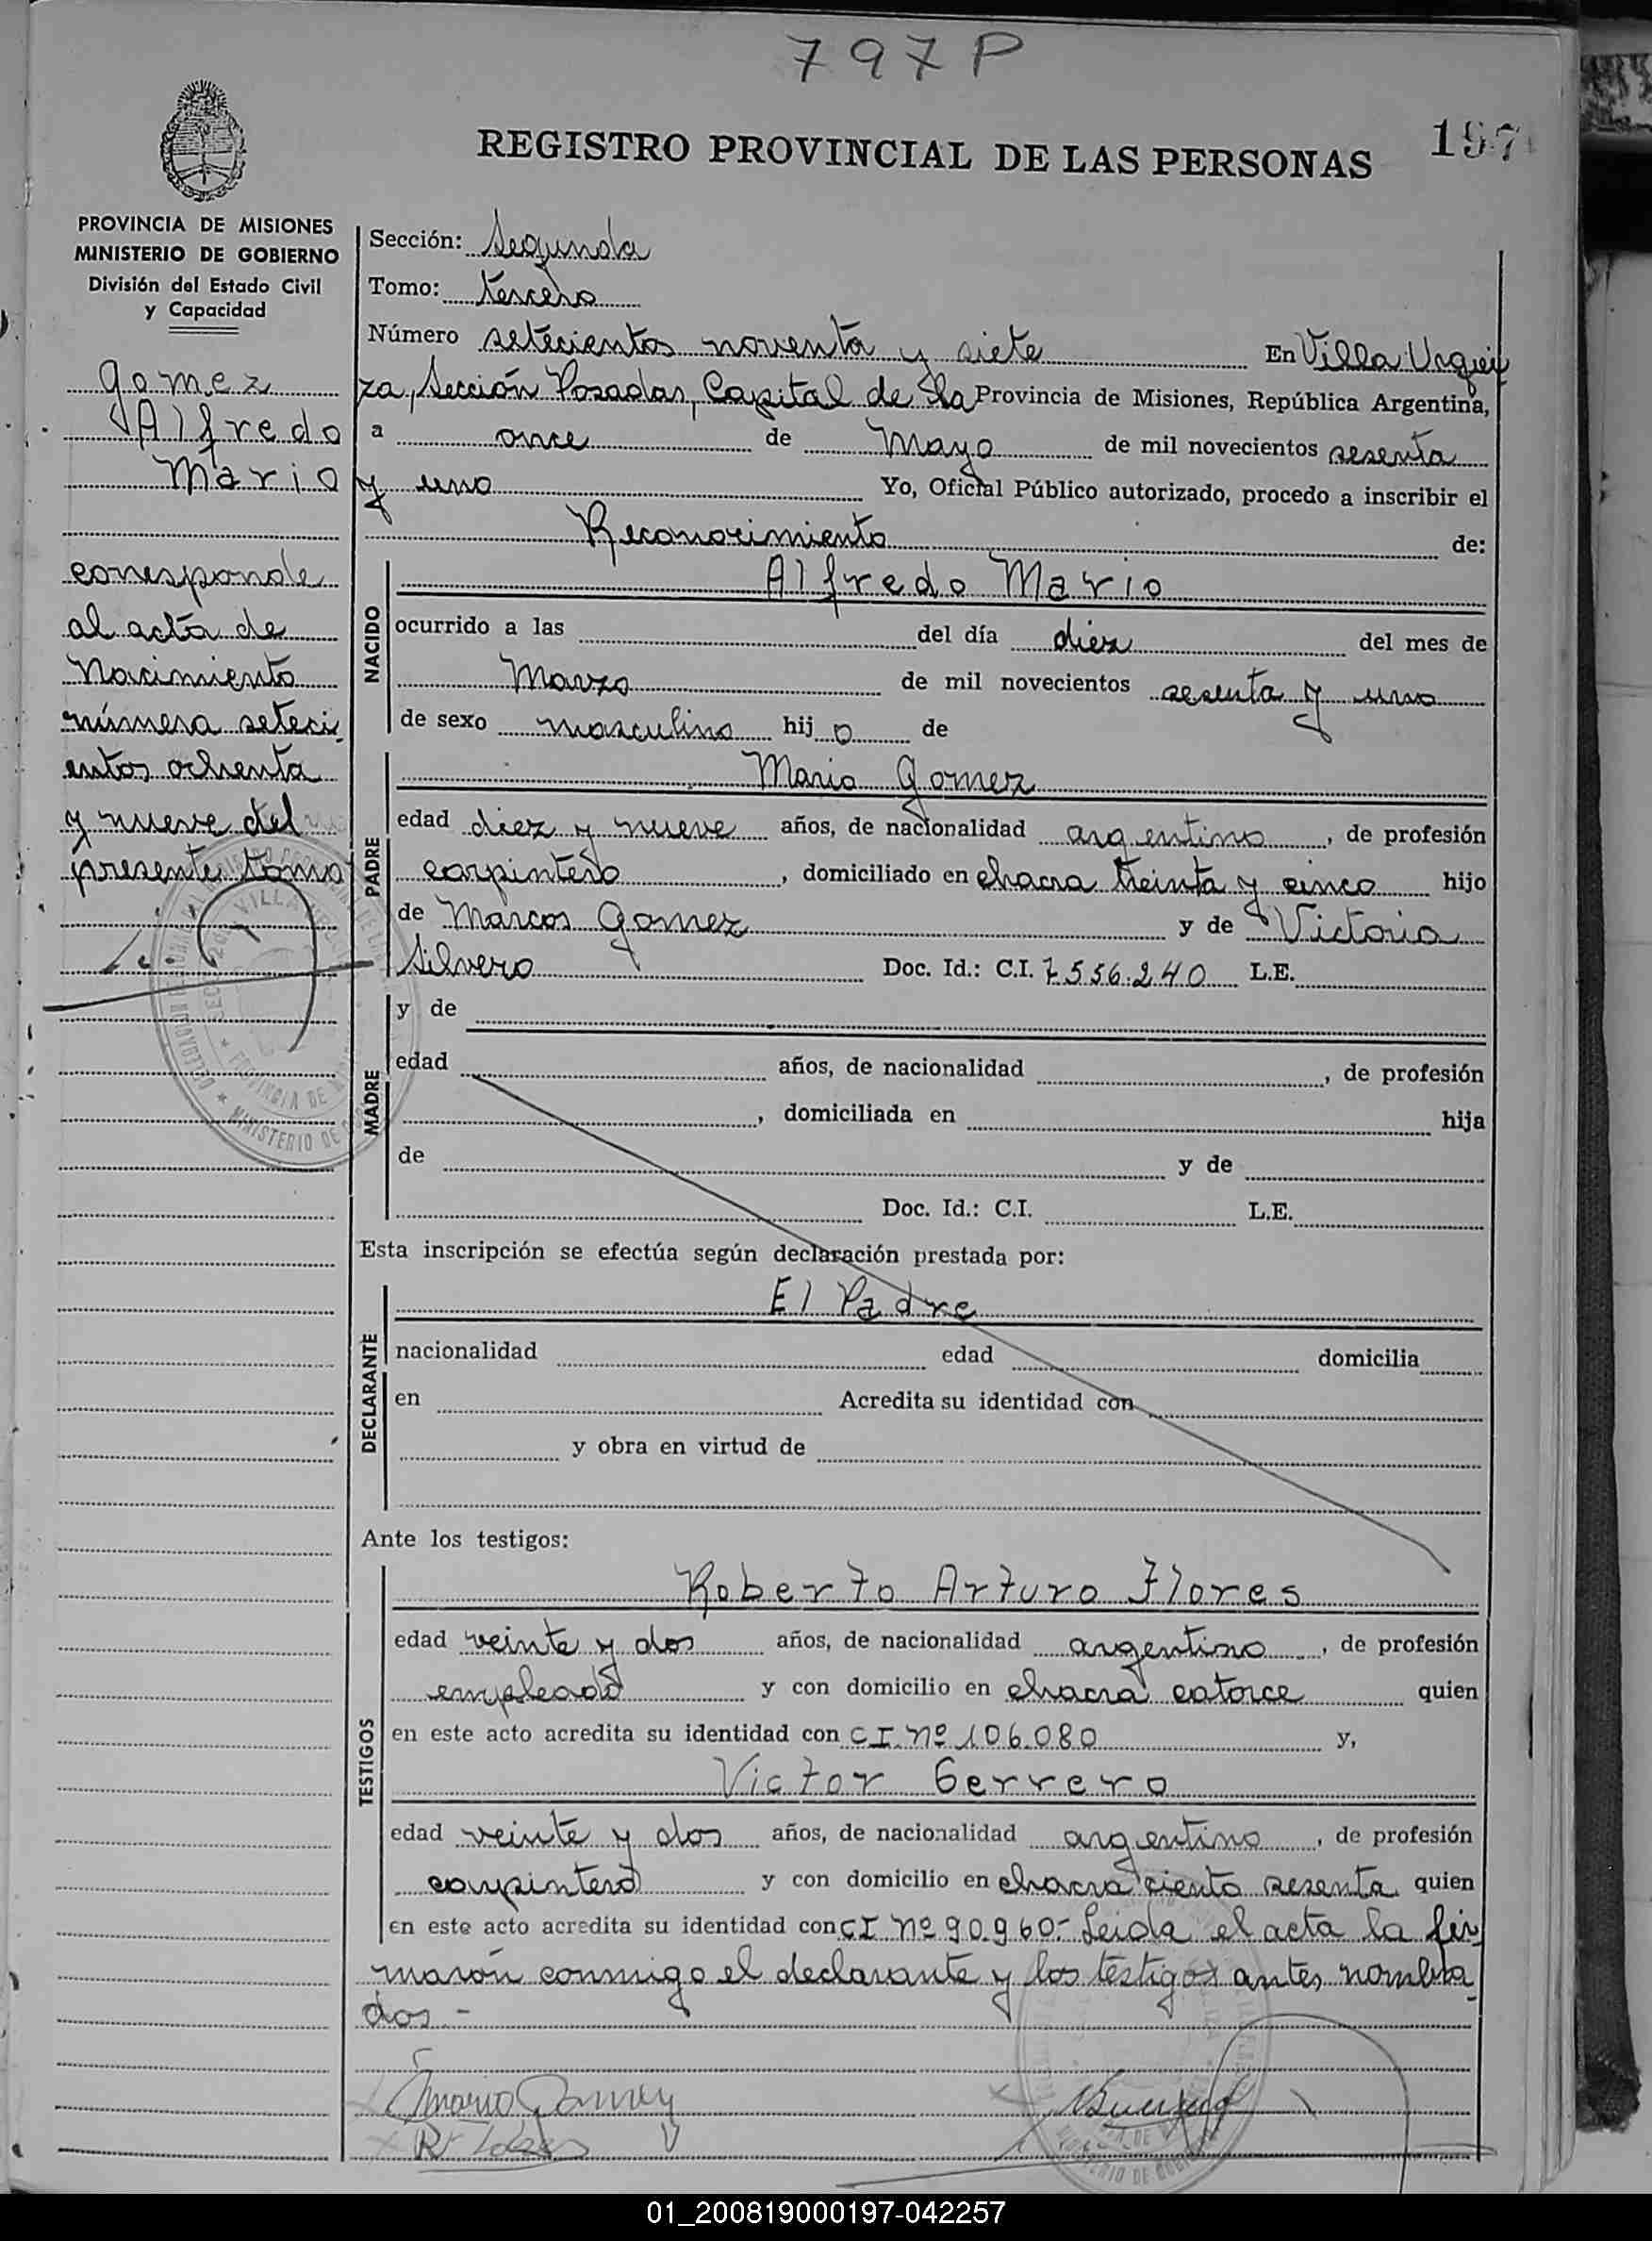 797P
197
REGISTRO PROVINCIAL DE LAS PERSONAS
PROVINCIA DE MISIONES
MINISTERIO DE GOBIERNO
División del Estado Civil
y Capacidad
Gomez
Alfredo
Mario
corresponde
al acta de
Nacimiento
número seteci
entos ochenta
y nueve del
presente tomo
Sección: Segunda
Tomo: tercero
Número setecientos noventa y siete En Villa Urquiy
za, Sección Posadas, Capital de la Provincia de Misiones, República Argentina,
a once de Mayo de mil novecientos sesenta
y uno Yo, Oficial Público autorizado, procedo a inscribir el
Reconocimiento de:
NACIDO
Alfredo Mario
ocurrido a las del día diez del mes de
Marzo de mil novecientos sesenta y uno
de sexo masculino hijo de
PADRE
Mario Gomez
edad diez y nueve años, de nacionalidad argentino, de profesión
carpintero, domiciliado en chacra treinta y cinco hijo
de Marcos Gomez y de Victoria
Silvero Doc. Id.: C.I. 7.556.240 L.E.
MADRE
y de
edad años, de nacionalidad , de profesión
, domiciliada en hija
de y de
Doc. Id.: C.I. L.E.
Esta inscripción se efectúa según declaración prestada por:
DECLARANTE
El Padre
nacionalidad edad domicilia
en Acredita su identidad con
y obra en virtud de
Ante los testigos:
TESTIGOS
Roberto Arturo Flores
edad veinte y dos años, de nacionalidad argentino, de profesión
empleado y con domicilio en chacra catorce quien
en este acto acredita su identidad con C I. Nº 106.080 y,
Victor Gerrero
edad veinte y dos años, de nacionalidad argentino, de profesión
carpintero y con domicilio en chacra ciento sesenta quien
en este acto acredita su identidad con C I Nº 90.960.- Leida el acta la fir
marón conmigo el declarante y los testigos antes nombra
dos.-
Mario Gomez
01_200819000197-042257